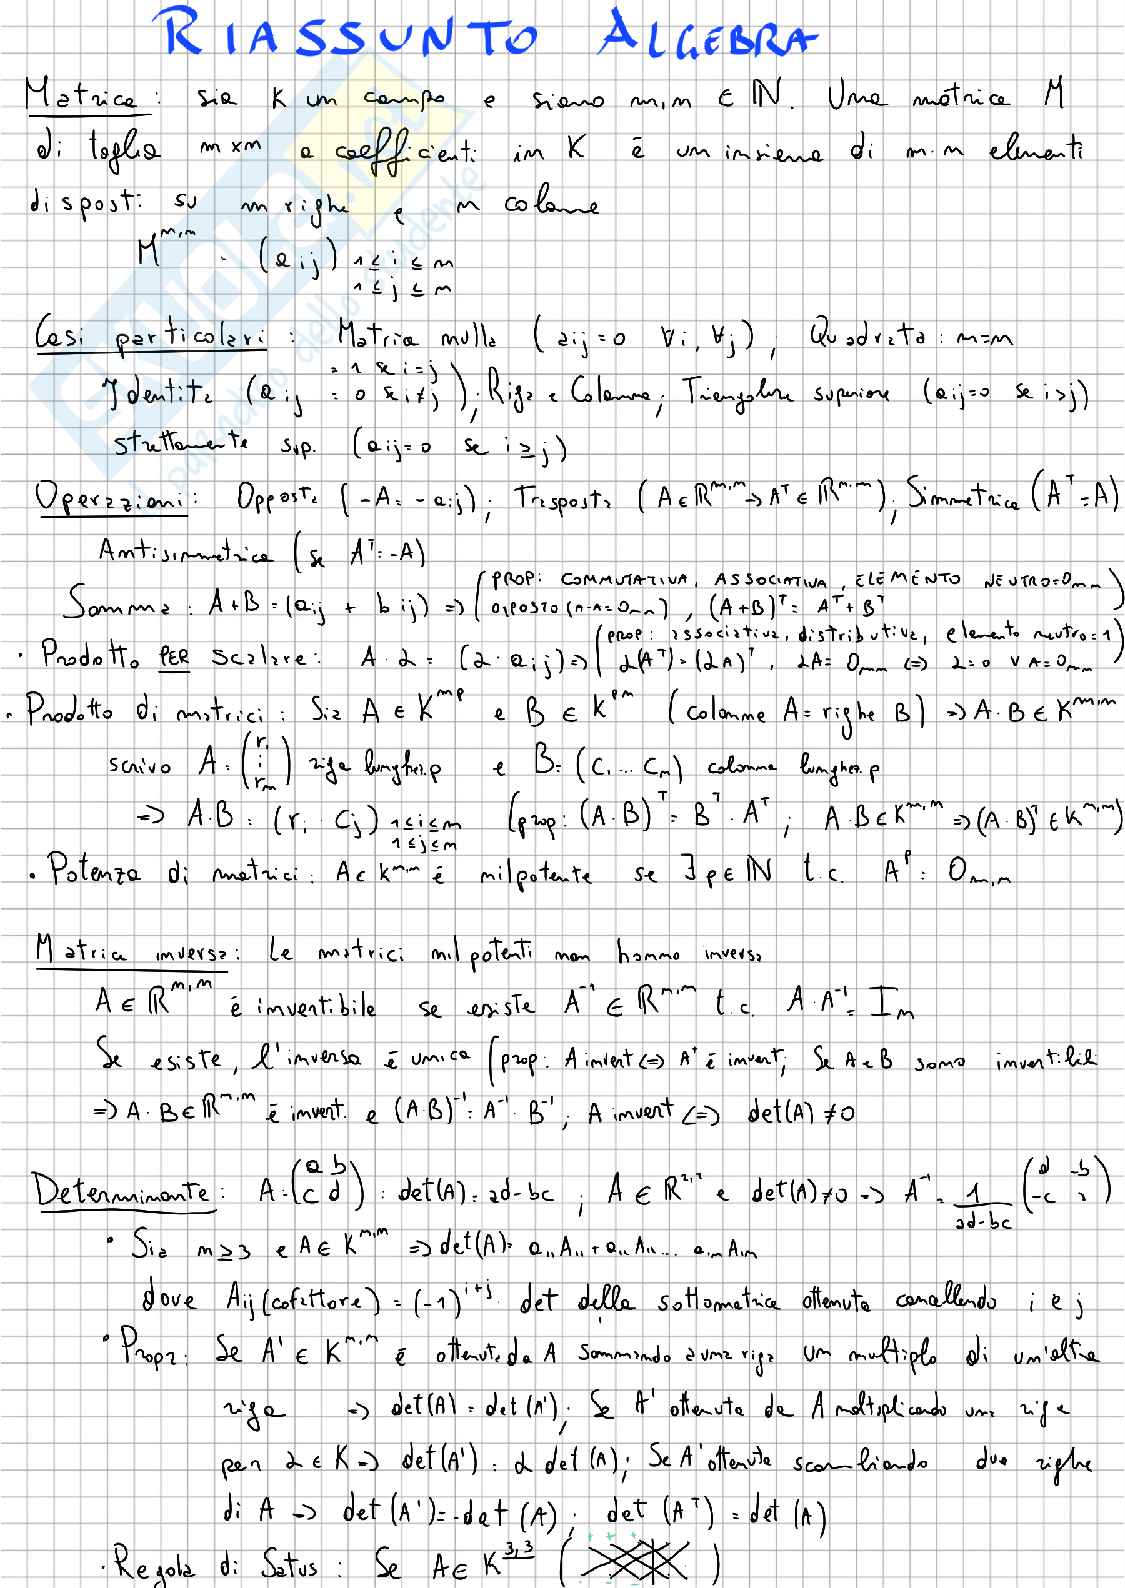 RIASSUNTO ALGEBRA
Matrice: sia K un campo e siano m,n ∈ ℕ. Una matrice M
di taglia m×n a coefficienti in K è un insieme di m·n elementi
disposti su m righe e n colonne
M^{m,n} = (aij) 1≤i≤m
1≤j≤n
Casi particolari: Matrice nulla (aij=0 ∀i,∀j), Quadrata: m=n
Identità (aij =1 se i=j =0 se i≠j); Riga e Colonna; Triangolare superiore (aij=0 se i>j)
strettamente sup. (aij=0 se i≥j)
Operazioni: Opposta (-A=-aij); Trasposta (A∈ℝ^{m,n}→A^T∈ℝ^{n,m}); Simmetrica (A^T=A)
Antisimmetrica (se A^T=-A)
Somma: A+B=(aij + bij) => (PROP: COMMUTATIVA, ASSOCIATIVA, ELEMENTO NEUTRO=0mn)
OPPOSTO (A-A=0mn), (A+B)^T= A^T+B^T
· Prodotto PER scalare: A·α = (α·aij)=> (PROP: associativa, distributiva, elemento neutro=1)
α(A^T)=(αA)^T, αA=0mn <=> α=0 ∨ A=0mn
· Prodotto di matrici: Sia A ∈ K^{mp} e B ∈ K^{pn} (colonne A=righe B) => A·B ∈ K^{m,n}
scrivo A=(r1 ⋮ rm) riga lunghez. p e B=(C1 ... Cn) colonna lunghez. p
=> A·B = (ri · Cj) 1≤i≤m (prop: (A·B)^T = B^T·A^T; A·B∈K^{m,n} =>(A·B)^T∈K^{n,m})
1≤j≤n
· Potenza di matrici: A∈K^{n,n} è nilpotente se ∃p∈ℕ t.c. A^p = 0n,n
Matrice inversa: Le matrici nilpotenti non hanno inversa
A∈ℝ^{n,n} è invertibile se esiste A^{-1} ∈ ℝ^{n,n} t.c. A·A^{-1}= In
Se esiste, l'inversa è unica (prop: A invert <=> A^T è invert; Se A e B sono invertibili
=> A·B∈ℝ^{n,n} è invert. e (A·B)^{-1}=A^{-1}·B^{-1}; A invert <=> det(A)≠0
Determinante: A=(a b c d) : det(A)=ad-bc ; A∈ℝ^{2,2} e det(A)≠0 => A^{-1} = 1/(ad-bc) (d -b -c a)
· Sia n≥3 e A∈K^{n,n} => det(A)= a11A11+a11A11... a1nA1n
dove Aij(cofattore) = (-1)^{i+j} · det della sottomatrice ottenuta cancellando i e j
· Propr: Se A' ∈ K^{n,n} è ottenuta da A sommando a una riga un multiplo di un'altra
riga => det(A)=det(A'); Se A' ottenuta da A moltiplicando una riga
per α∈K => det(A') = α det(A); Se A' ottenuta scambiando due righe
di A => det(A')=-det(A); det(A^T)=det(A)
· Regola di Satus: Se A∈K^{3,3} ( + + + - - - )